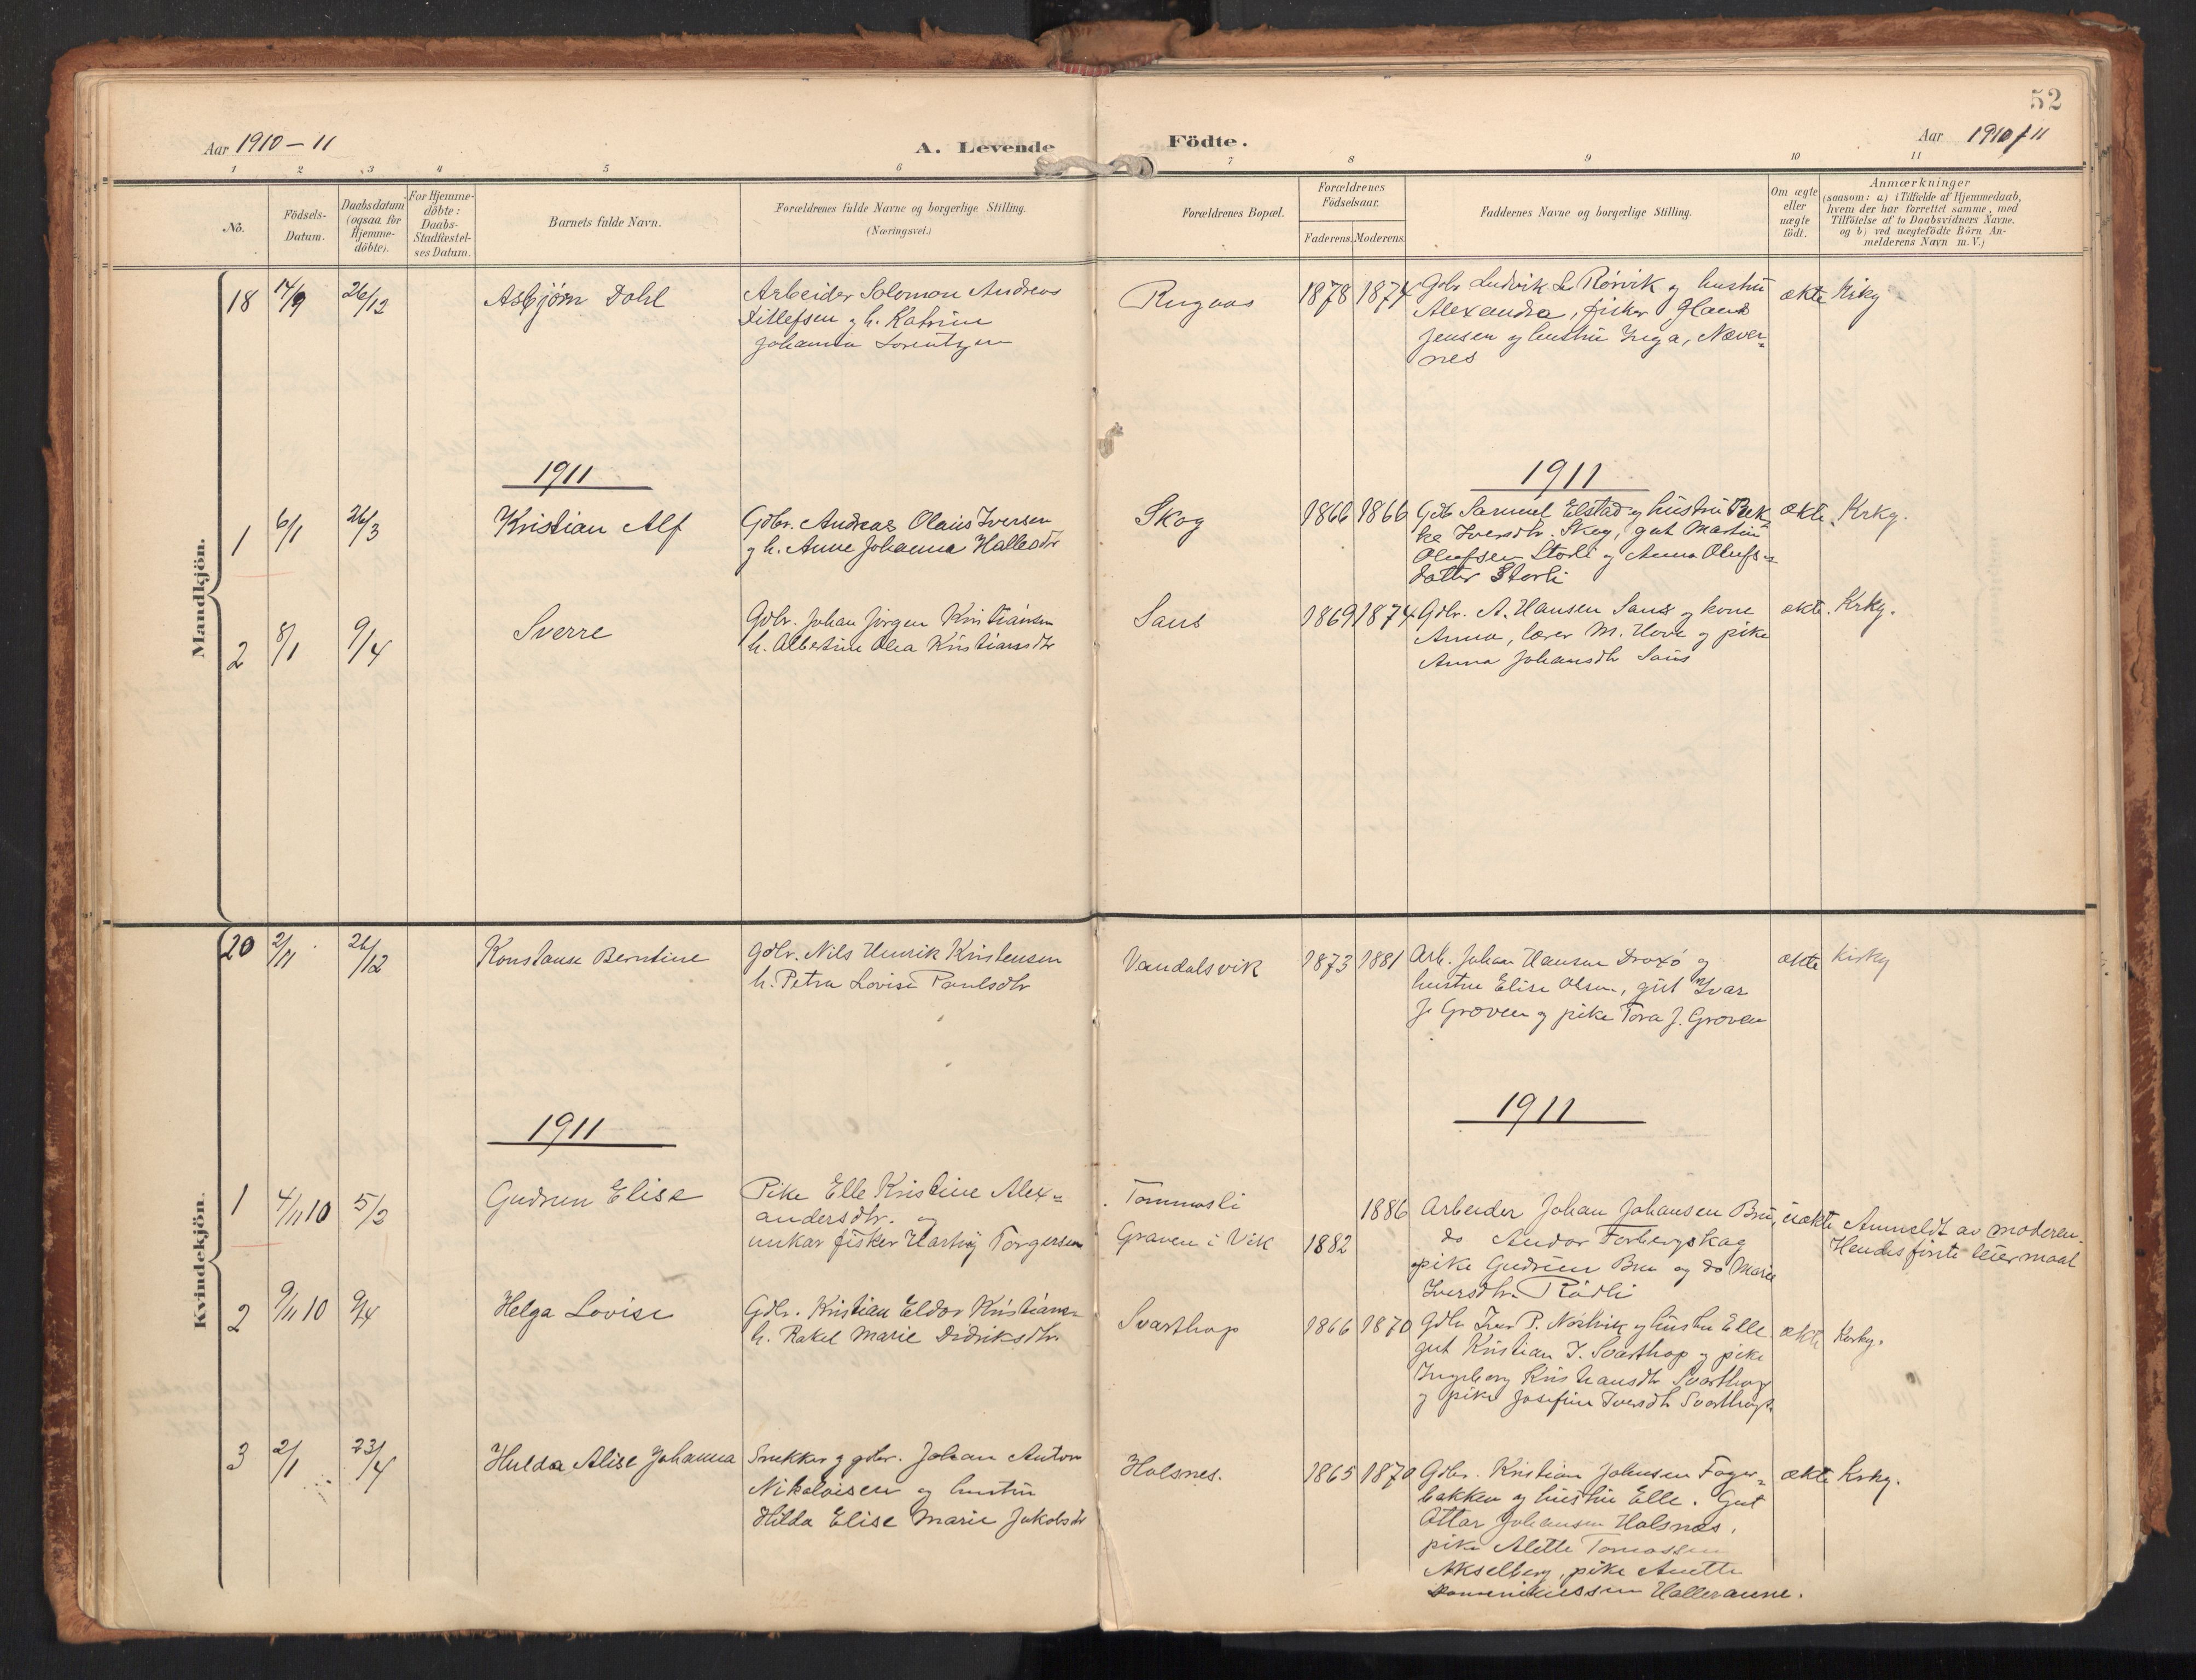 52
Aar 1910-11
A. Levende
Födte.
Aar 1910/11
1 2 3 4 5 6 7 8 9 10 11
No.
Födsels-Datum.
Daabsdatum (ogsaa for Hjemme-döbte).
For Hjemme-döbte: Daabs-Stadfæstel-ses Datum.
Barnets fulde Navn.
Forældrenes fulde Navne og borgerlige Stilling.
(Næringsvei.)
Forældrenes Bopæl.
Forældrenes Födselsaar.
Faderens. Moderens.
Faddernes Navne og borgerlige Stilling.
Om ægte eller uægte födt.
Anmærkninger
(saasom: a) i Tilfælde af Hjemmedaab,
hvem der har forrettet samme, med
Tilföielse af to Daabsvidners Navne.
og b) ved uægtefödte Börn An-
melderens Navn m. V.)
Mandkjön.
18 14/9 26/12 Asbjørn Dahl
Arbeider Solomon Andreas
Ditlefsen og h. Katrine
Johanna Lorentzen
Rugaas 1878 1874
Gdbr Ludvik L. Rørvik og hustru
Alexandra, fisker Hans
Jensen og hustru Inga, Næver-
nes
ekte Kirky
1911
1911
1 6/1 26/3 Kristian Alf
Gdbr. Andreas Olaus Iversen
og h. Anne Johanna Hallesdtr
Skog 1866 1866
Gdb Samuel Elstad og hustru Bek
ke Iversdtr. Skog, gut Martin
Olufsen Storli og Anna Olufs-
datter Storli
ekte Krky.
2 8/1 9/4 Sverre
Gdbr. Johan Jørgen Kristiansen
h. Albertine Olea Kristiansdtr
Saus 1869 1874
Gdbr. A. Hansen Saus og kone
Anna, lærer M. Hove og pike
Anna Johansdtr Saus
ekte. Krky.
Kvindekjön.
20 2/11 26/12 Konstanse Berntine
gdbr. Nils Henrik Kristensen
h. Petra Lovise Paulsdtr
Vandalsvik 1873 1881
Arb. Johan Hansen Draxö og
hustru Elise Olsen, gut Ivar
J. Groven og pike Tora J. Groven
ekte Kirky
1911
1911
1 4/11 10 5/2 Gudrun Elise
Pike Elle Kristine Alex-
andersdtr. og
unkar fisker Hartvig Torgersen
Tommasli
Graven i Vik
1886
1882
Arbeider Johan Johansen Bru,
do Andor Forbergskog
pike Gudrun Bru og do Marie
Iversdtr. Rödli
uekte Anmeldt av moderen.
Hendes første leiermaal
2 9/11 10 9/4 Helga Lovise
Gdbr. Kristian Eldor Kristiansen
h. Rakel Marie Didriksdtr.
Svarthop 1866 1870
Gdbr Iver P. Nostvik og hustru Elle
gut Kristian J. Svarthop og pike
Ingeborg Kristiansdtr Svarthop
og pike Josefine Iversdtr Svarthop.
ekte Krky.
3 2/1 23/4 Hulda Alise Johanna
Snekker og gdbr. Johan Anton
Nikolaisen og hustru
Hilda Elise Marie Jakobsdtr
Holsnes. 1865 1870
Gdbr. Kristian Johnsen Fager-
bakken og hustru Elle. Gut
Ottar Johansen Holsnes,
pike Alette Tomassen
Akselberg, pike Anette
Halleraune.
ekte Krky.